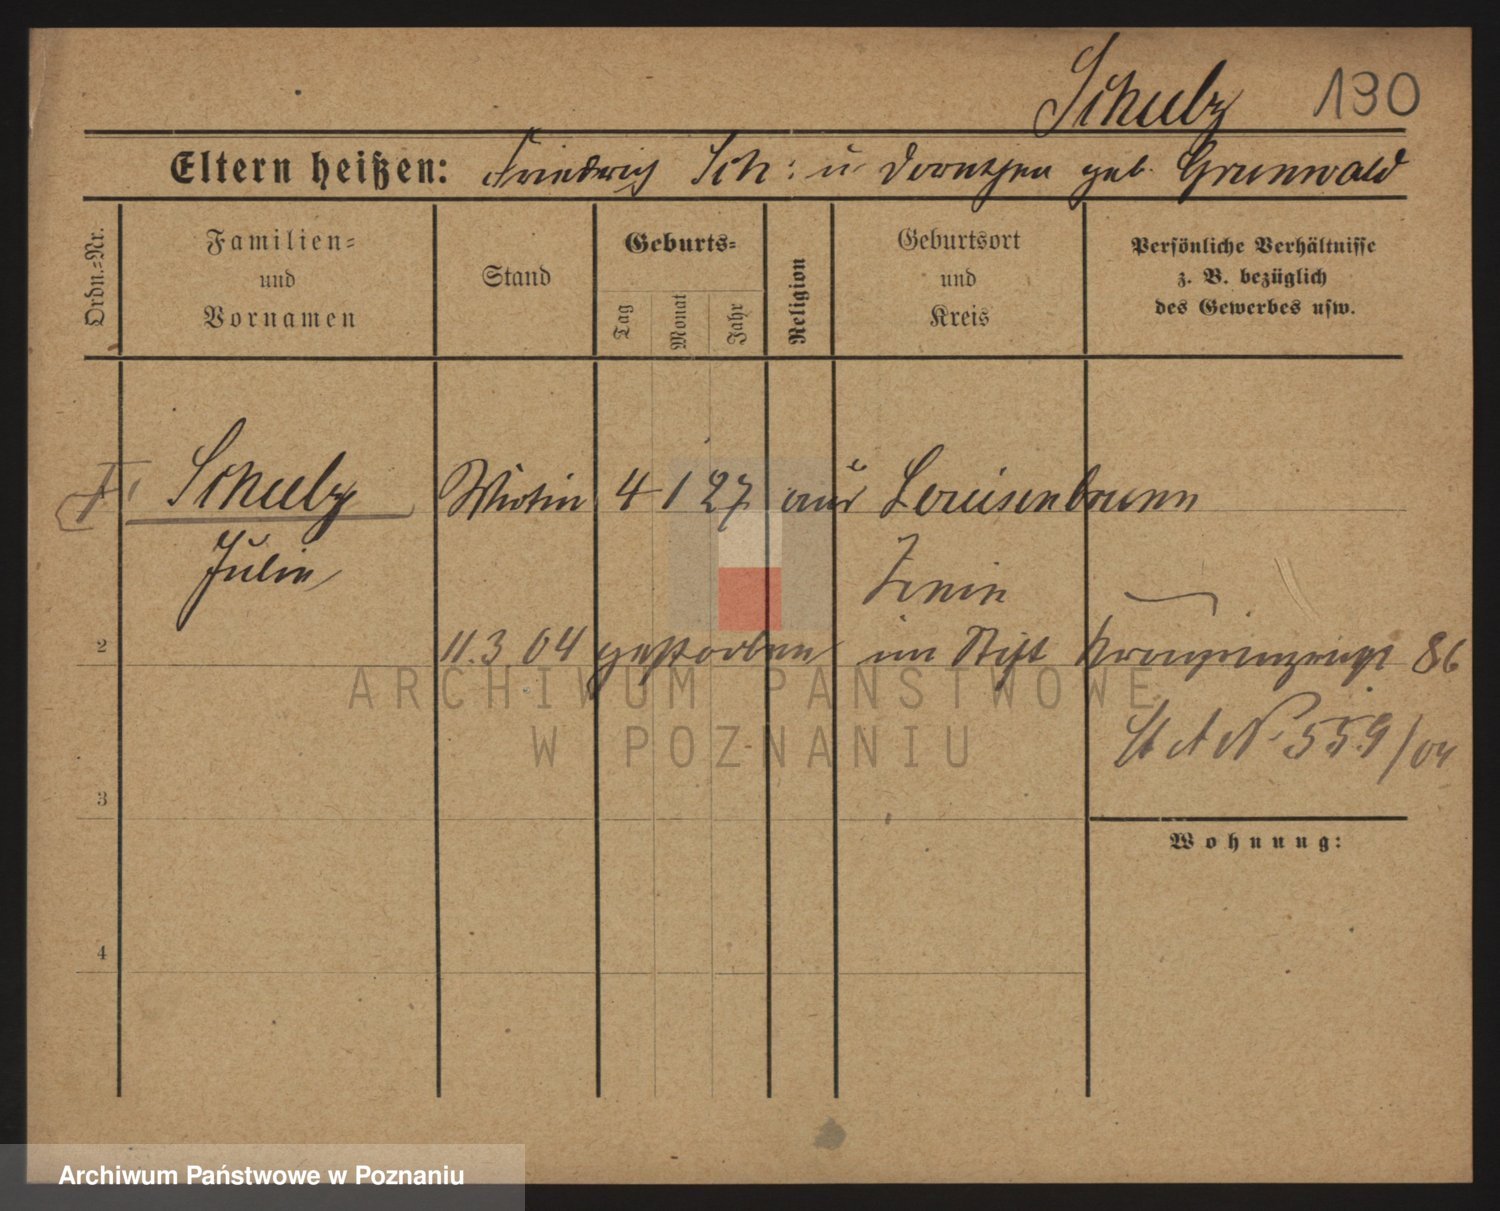 Schulz 130
Eltern heißen: Friedrich Sch: u Dorothea geb. Grunwald
Ordn.-Nr.
Familien-
und
Vornamen
Stand
Geburts-
Tag
Monat
Jahr
Religion
Geburtsort
und
Kreis
Persönliche Verhältnisse
z. B. bezüglich
des Gewerbes usw.
Schulz Wirtin 4 1 27 aus Louisenbrunn
Julie
Znin
2
11.3 04 gestorben im Stift 86
St A N 559/04
3
Wohnung:
4
ARCHIWUM PAŃSTWOWE
W POZNANIU
Archiwum Państwowe w Poznaniu